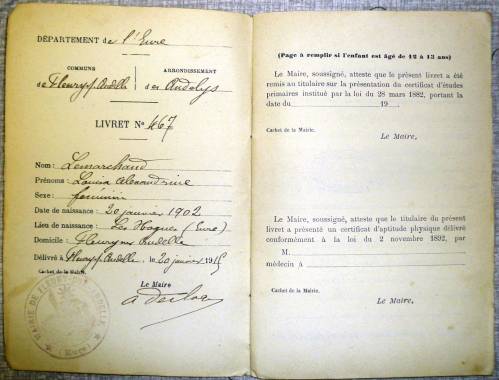 DÉPARTEMENT de l'Eure
COMMUNE
de Fleury s. Andelle
ARRONDISSEMENT
des Andelys
LIVRET No 467
Nom : Lemarchand
Prénoms : Louisa Alexandrine
Sexe : féminin
Date de naissance : 20 janvier 1902
Lieu de naissance : Les Hogues (Eure)
Domicile : Fleury sur Andelle
Délivré à Fleury s. Andelle, le 20 janvier 1915
Cachet de la Mairie.
Le Maire
MAIRIE DE FLEURY-SUR-ANDELLE
(Eure)
(Page à remplir si l'enfant est âgé de 12 à 13 ans)
Le Maire, soussigné, atteste que le présent livret a été
remis au titulaire sur la présentation du certificat d'études
primaires institué par la loi du 28 mars 1882, portant la
date du 19 .
Cachet de la Mairie.
Le Maire,
Le Maire, soussigné, atteste que le titulaire du présent
livret a présenté un certificat d'aptitude physique délivré
conformément à la loi du 2 novembre 1892, par
M.
médecin à
Cachet de la Mairie.
Le Maire,